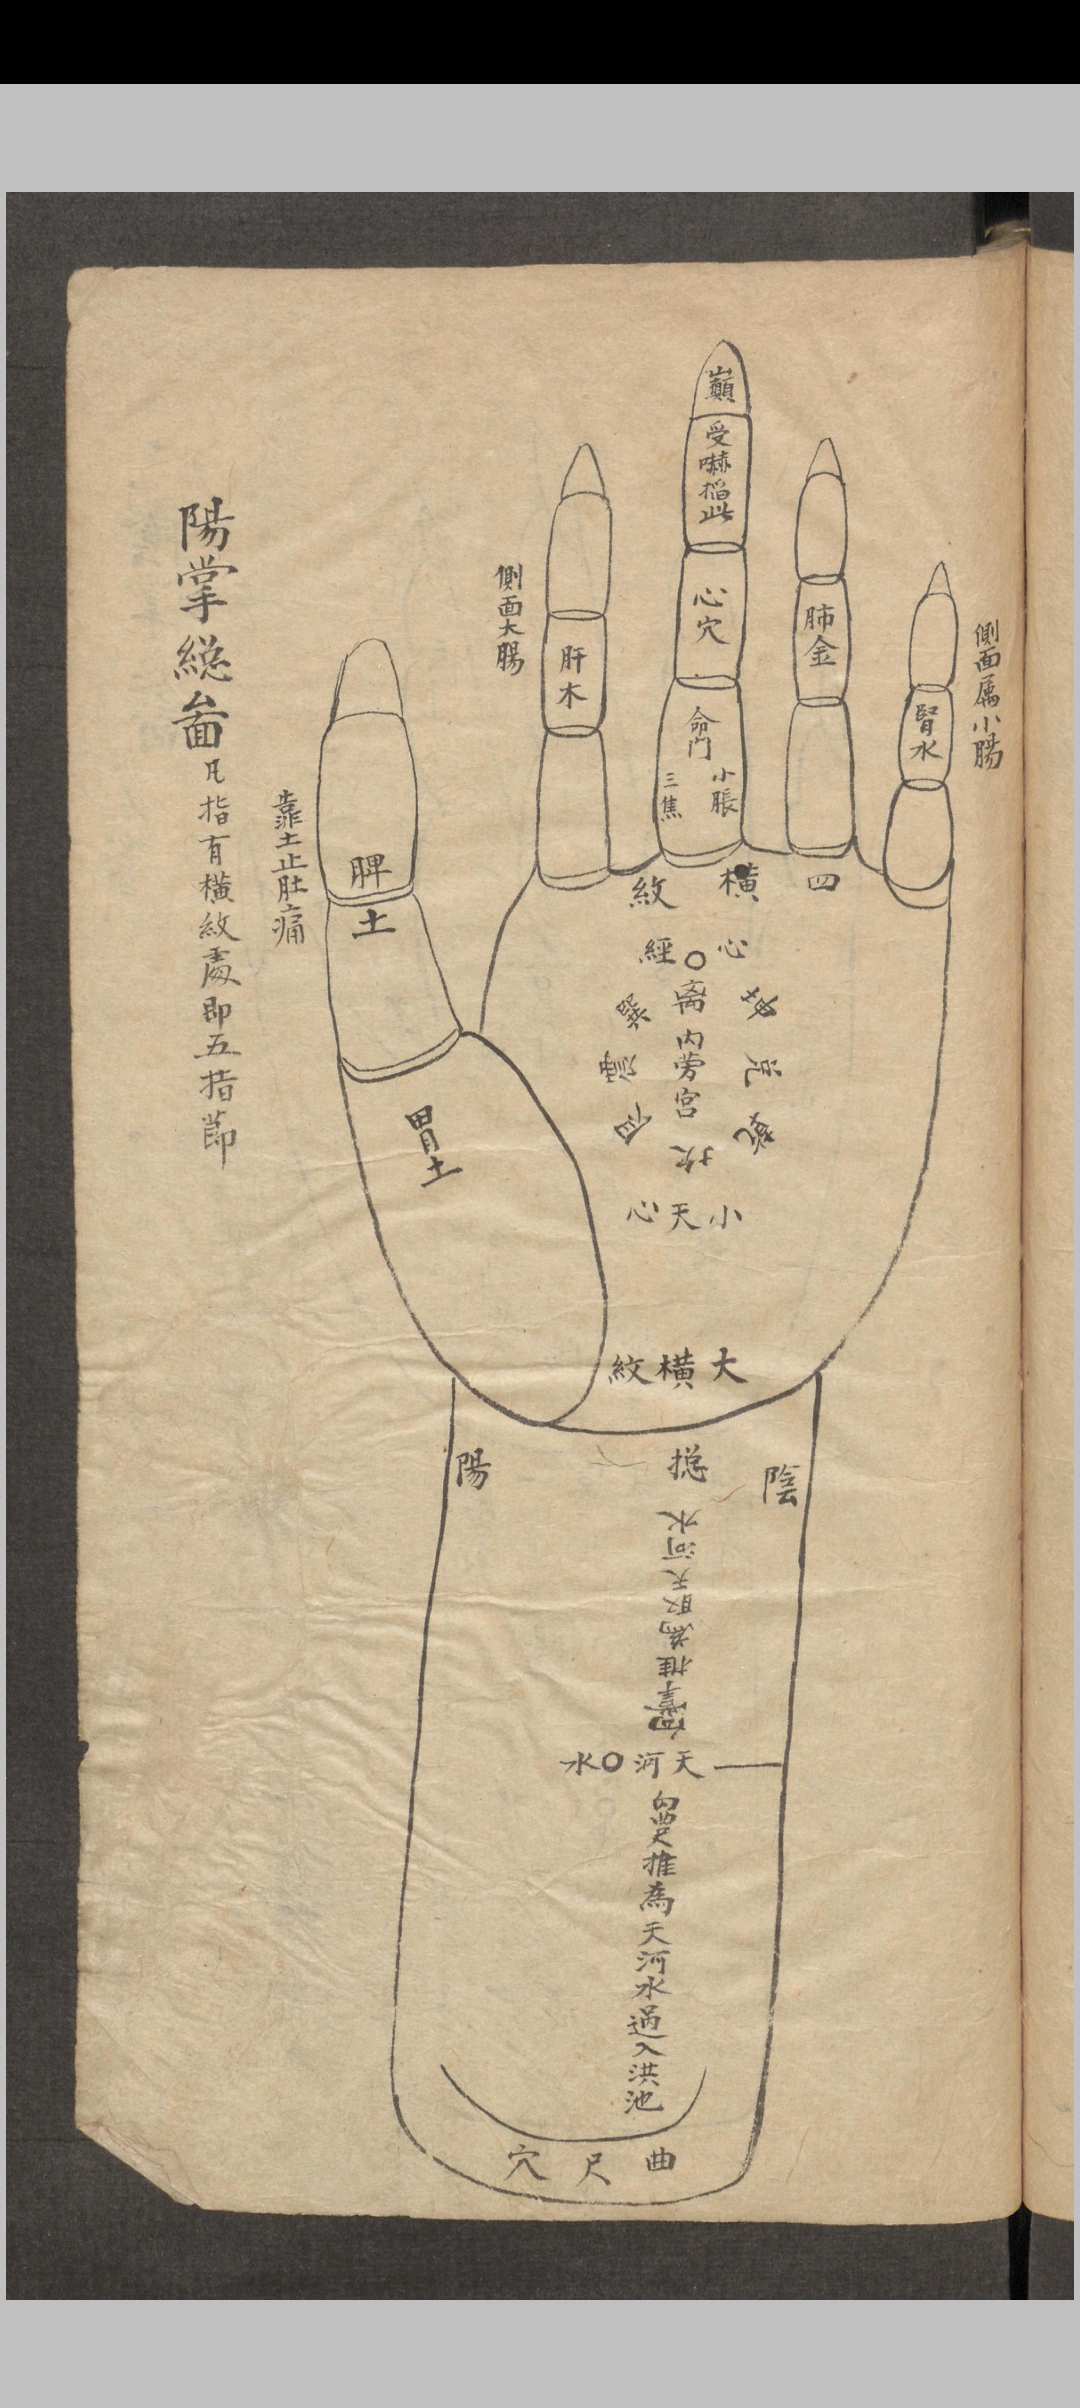 陽掌總圖
凡指有橫紋處即五指節
靠土止肚痛
脾
土
胃土
側面大腸
肝木
巔
受嚇掐此
心穴
命門
三焦
小腸
肺金
腎水
側面屬小腸
四橫紋
心經
离
坤
兌
乾
坎
艮
震
巽
內勞宮
小天心
大橫紋
陽
總
陰
向掌推為取天河水
天河水
向曲尺推為天河水過入洪池
曲尺穴